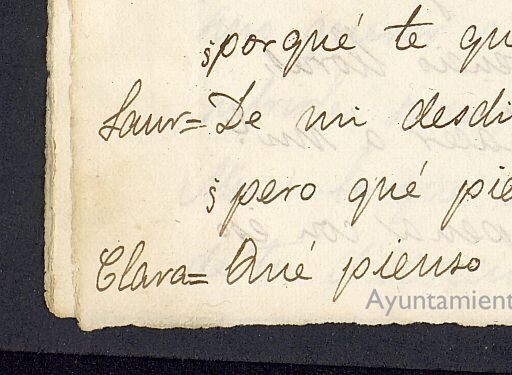 ¿porqué te qu
Laur= De mi desdi
¿pero qué pie
Clara= Qué pienso
Ayuntamient